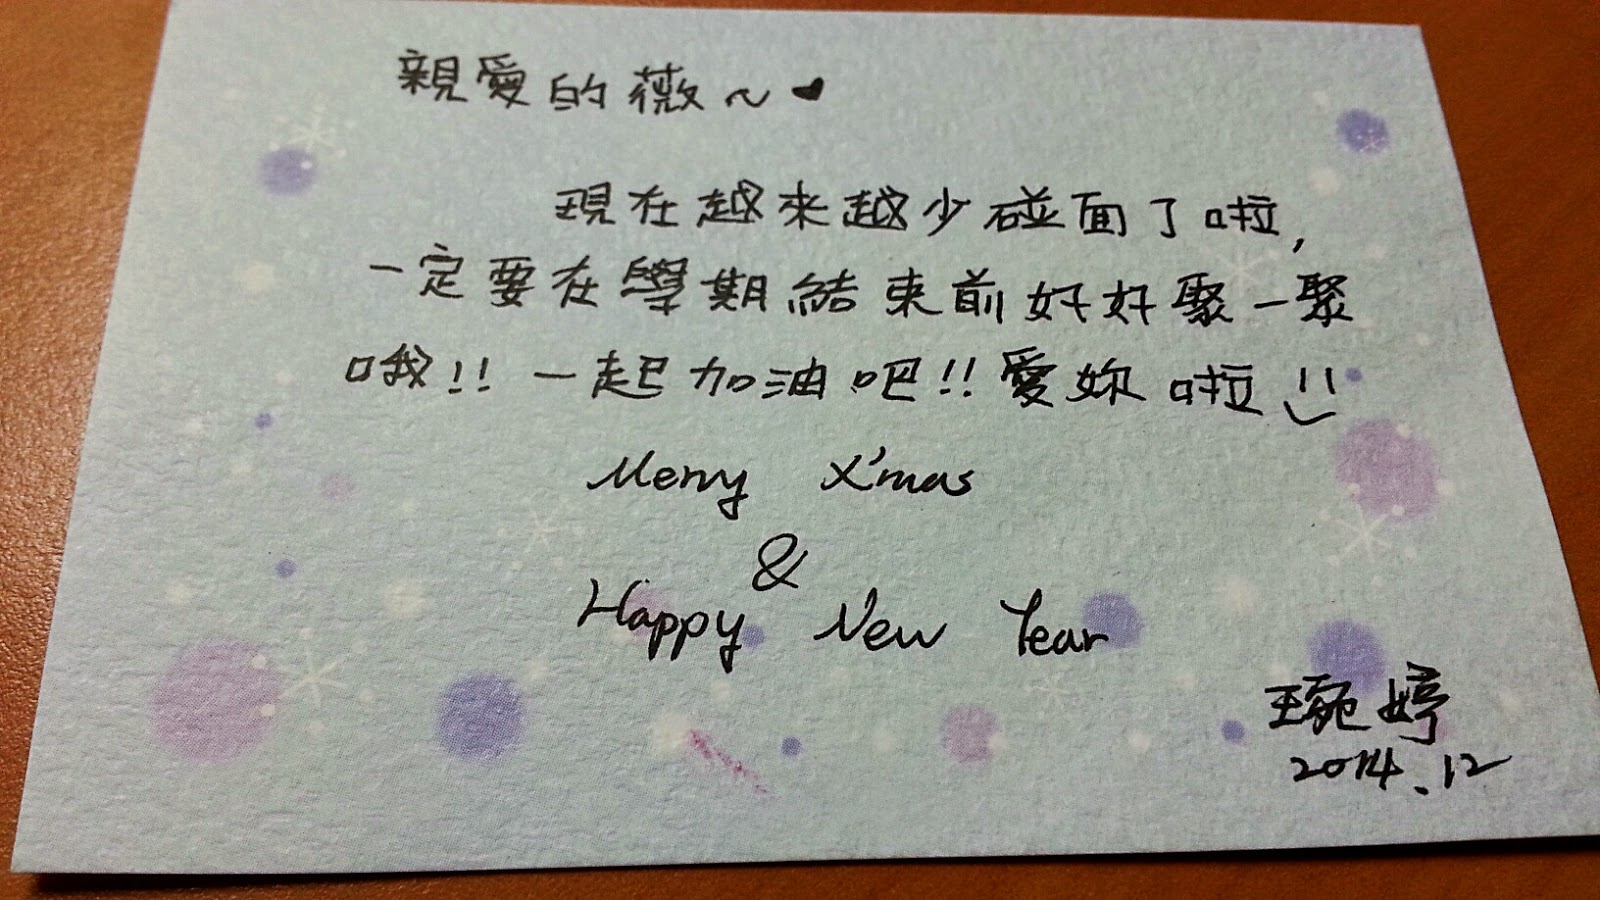 親愛的薇~♥
現在越來越少碰面了啦,
一定要在學期結束前好好聚一聚
哦!! 一起加油吧!! 愛妳啦
Merry X'mas
&
Happy New Year
琬婷
2014.12